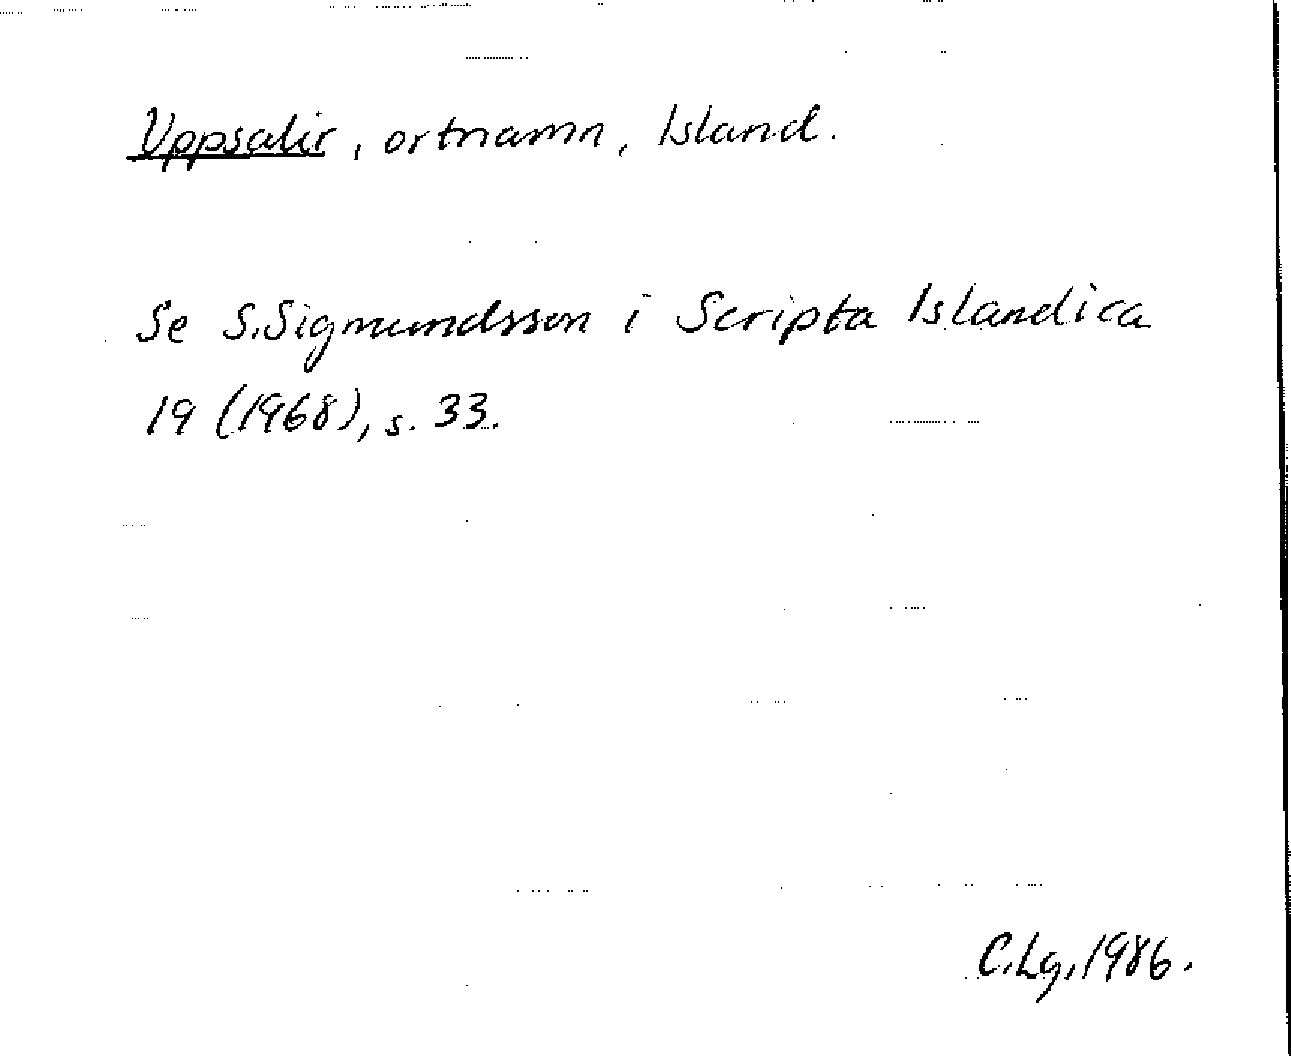 Uppsalir, ortnamn, Island.
Se S. Sigmundsson i Scripta Islandica
19 (1968), s. 33.
C.Lg, 1986.